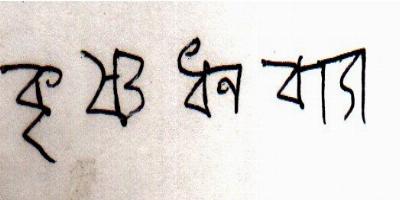 কৃষ্ণ ধন বাডা